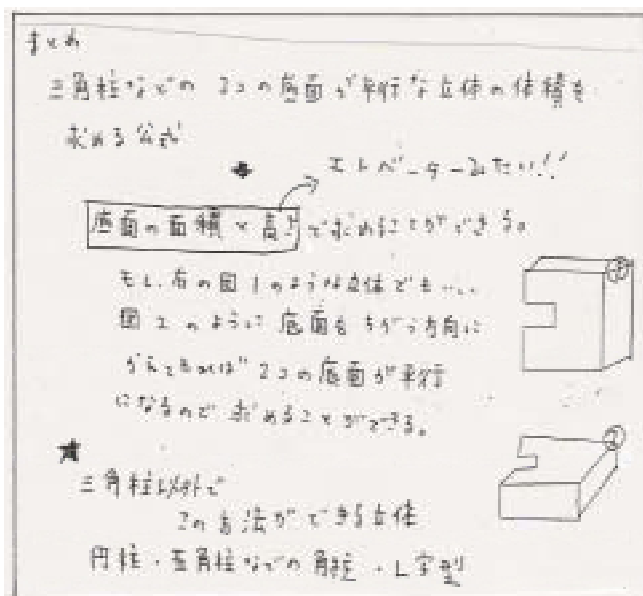 まとめ
三角柱などの2つの底面が平行な立体の体積を
求める公式
エレベーターみたい!!
底面の面積×高さで求めることができる。
もし、右の図1のような立体でも…
図2のように底面をちがう方向に
かえてみれば2つの底面が平行
になるので求めることができる。
★
三角柱以外で
この方法ができる立体
円柱・五角柱などの角柱・L字型
①
②